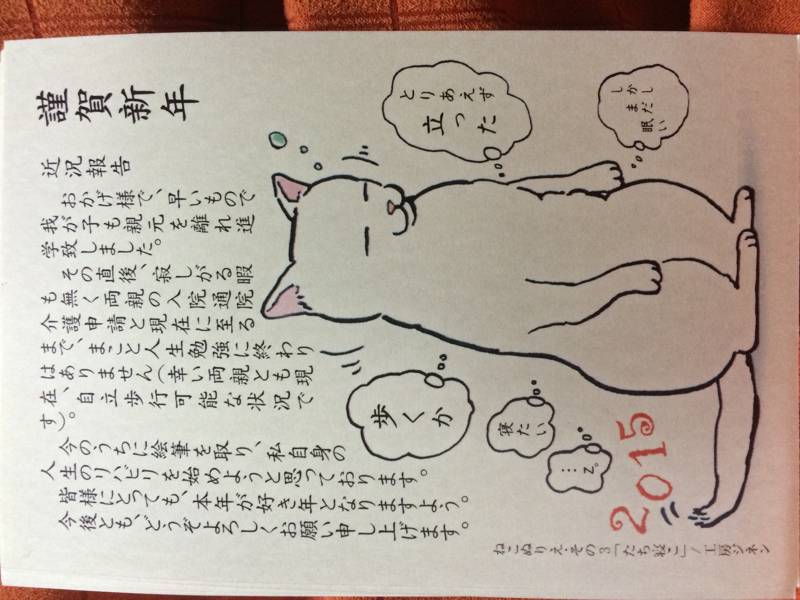 謹賀新年
近況報告
おかげ様で、早いもので
我が子も親元を離れ進
学致しました。
その直後、寂しがる暇
も無く両親の入院通院
介護申請と現在に至る
まで、まこと人生勉強に終わり
はありません(幸い両親とも現
在、自立歩行可能な状況で
す)。
今のうちに絵筆を取り、私自身の
人生のリハビリを始めようと思っております。
皆様にとっても、本年が好き年となりますよう。
今後とも、どうぞよろしくお願い申し上げます。
とりあえず
立った
しかし
まだ
眠い
歩くか
寝たい
…z。
2015
ねこぬりえ・その3「たち寝こ」/工房ジネン